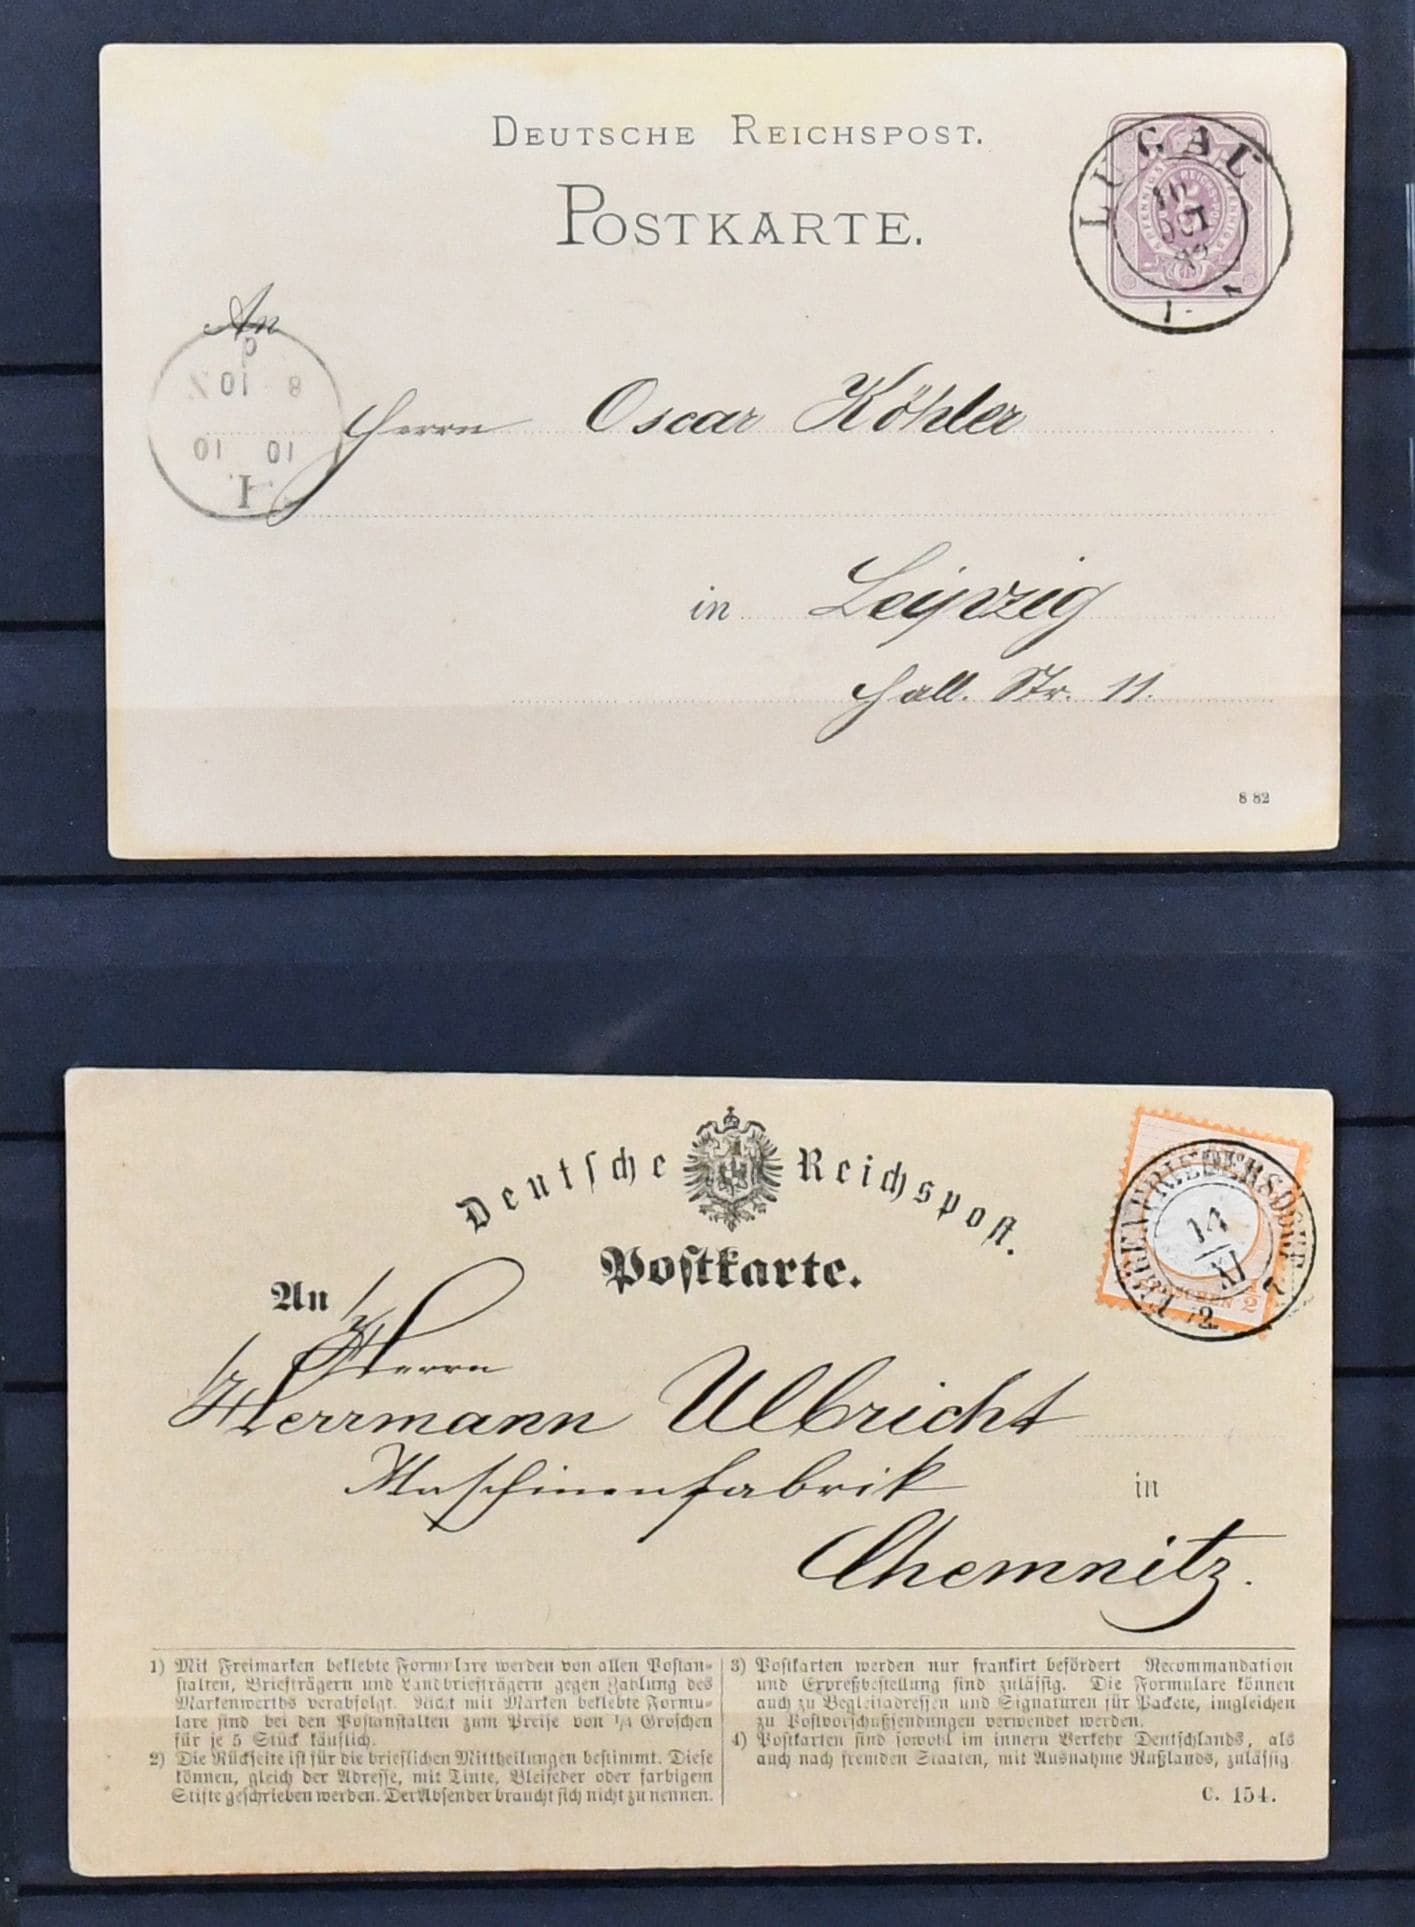 DEUTSCHE REICHSPOST.
POSTKARTE.
LUGAU
10
OCT
82
1-
An
8 10
10 10
I.
Herrn Oscar Köhler
in Leipzig
Hall. Str. 11.
8 82
Deutsche Reichspost.
Postkarte.
14
XI
GROSCHEN 1/2
An
Herrn
Herrmann Ulbricht
Maschinenfabrik in
Chemnitz.
1) Mit Freimarken beklebte Formulare werden von allen Postan-
stalten, Briefträgern und Landbriefträgern gegen Zahlung des
Markenwerths verabfolgt. Nicht mit Marken beklebte Formu-
lare sind bei den Postanstalten zum Preise von 1/4 Groschen
für je 5 Stück käuflich.
2) Die Rückseite ist für die brieflichen Mittheilungen bestimmt. Diese
können, gleich der Adresse, mit Tinte, Bleifeder oder farbigem
Stifte geschrieben werden. Der Absender braucht sich nicht zu nennen.
3) Postkarten werden nur frankirt befördert Recommandation
und Expreßbestellung sind zulässig. Die Formulare können
auch zu Begleitadressen und Signaturen für Packete, imgleichen
zu Postvorschußsendungen verwendet werden.
4) Postkarten sind sowohl im innern Verkehr Deutschlands, als
auch nach fremden Staaten, mit Ausnahme Rußlands, zulässig
C. 154.